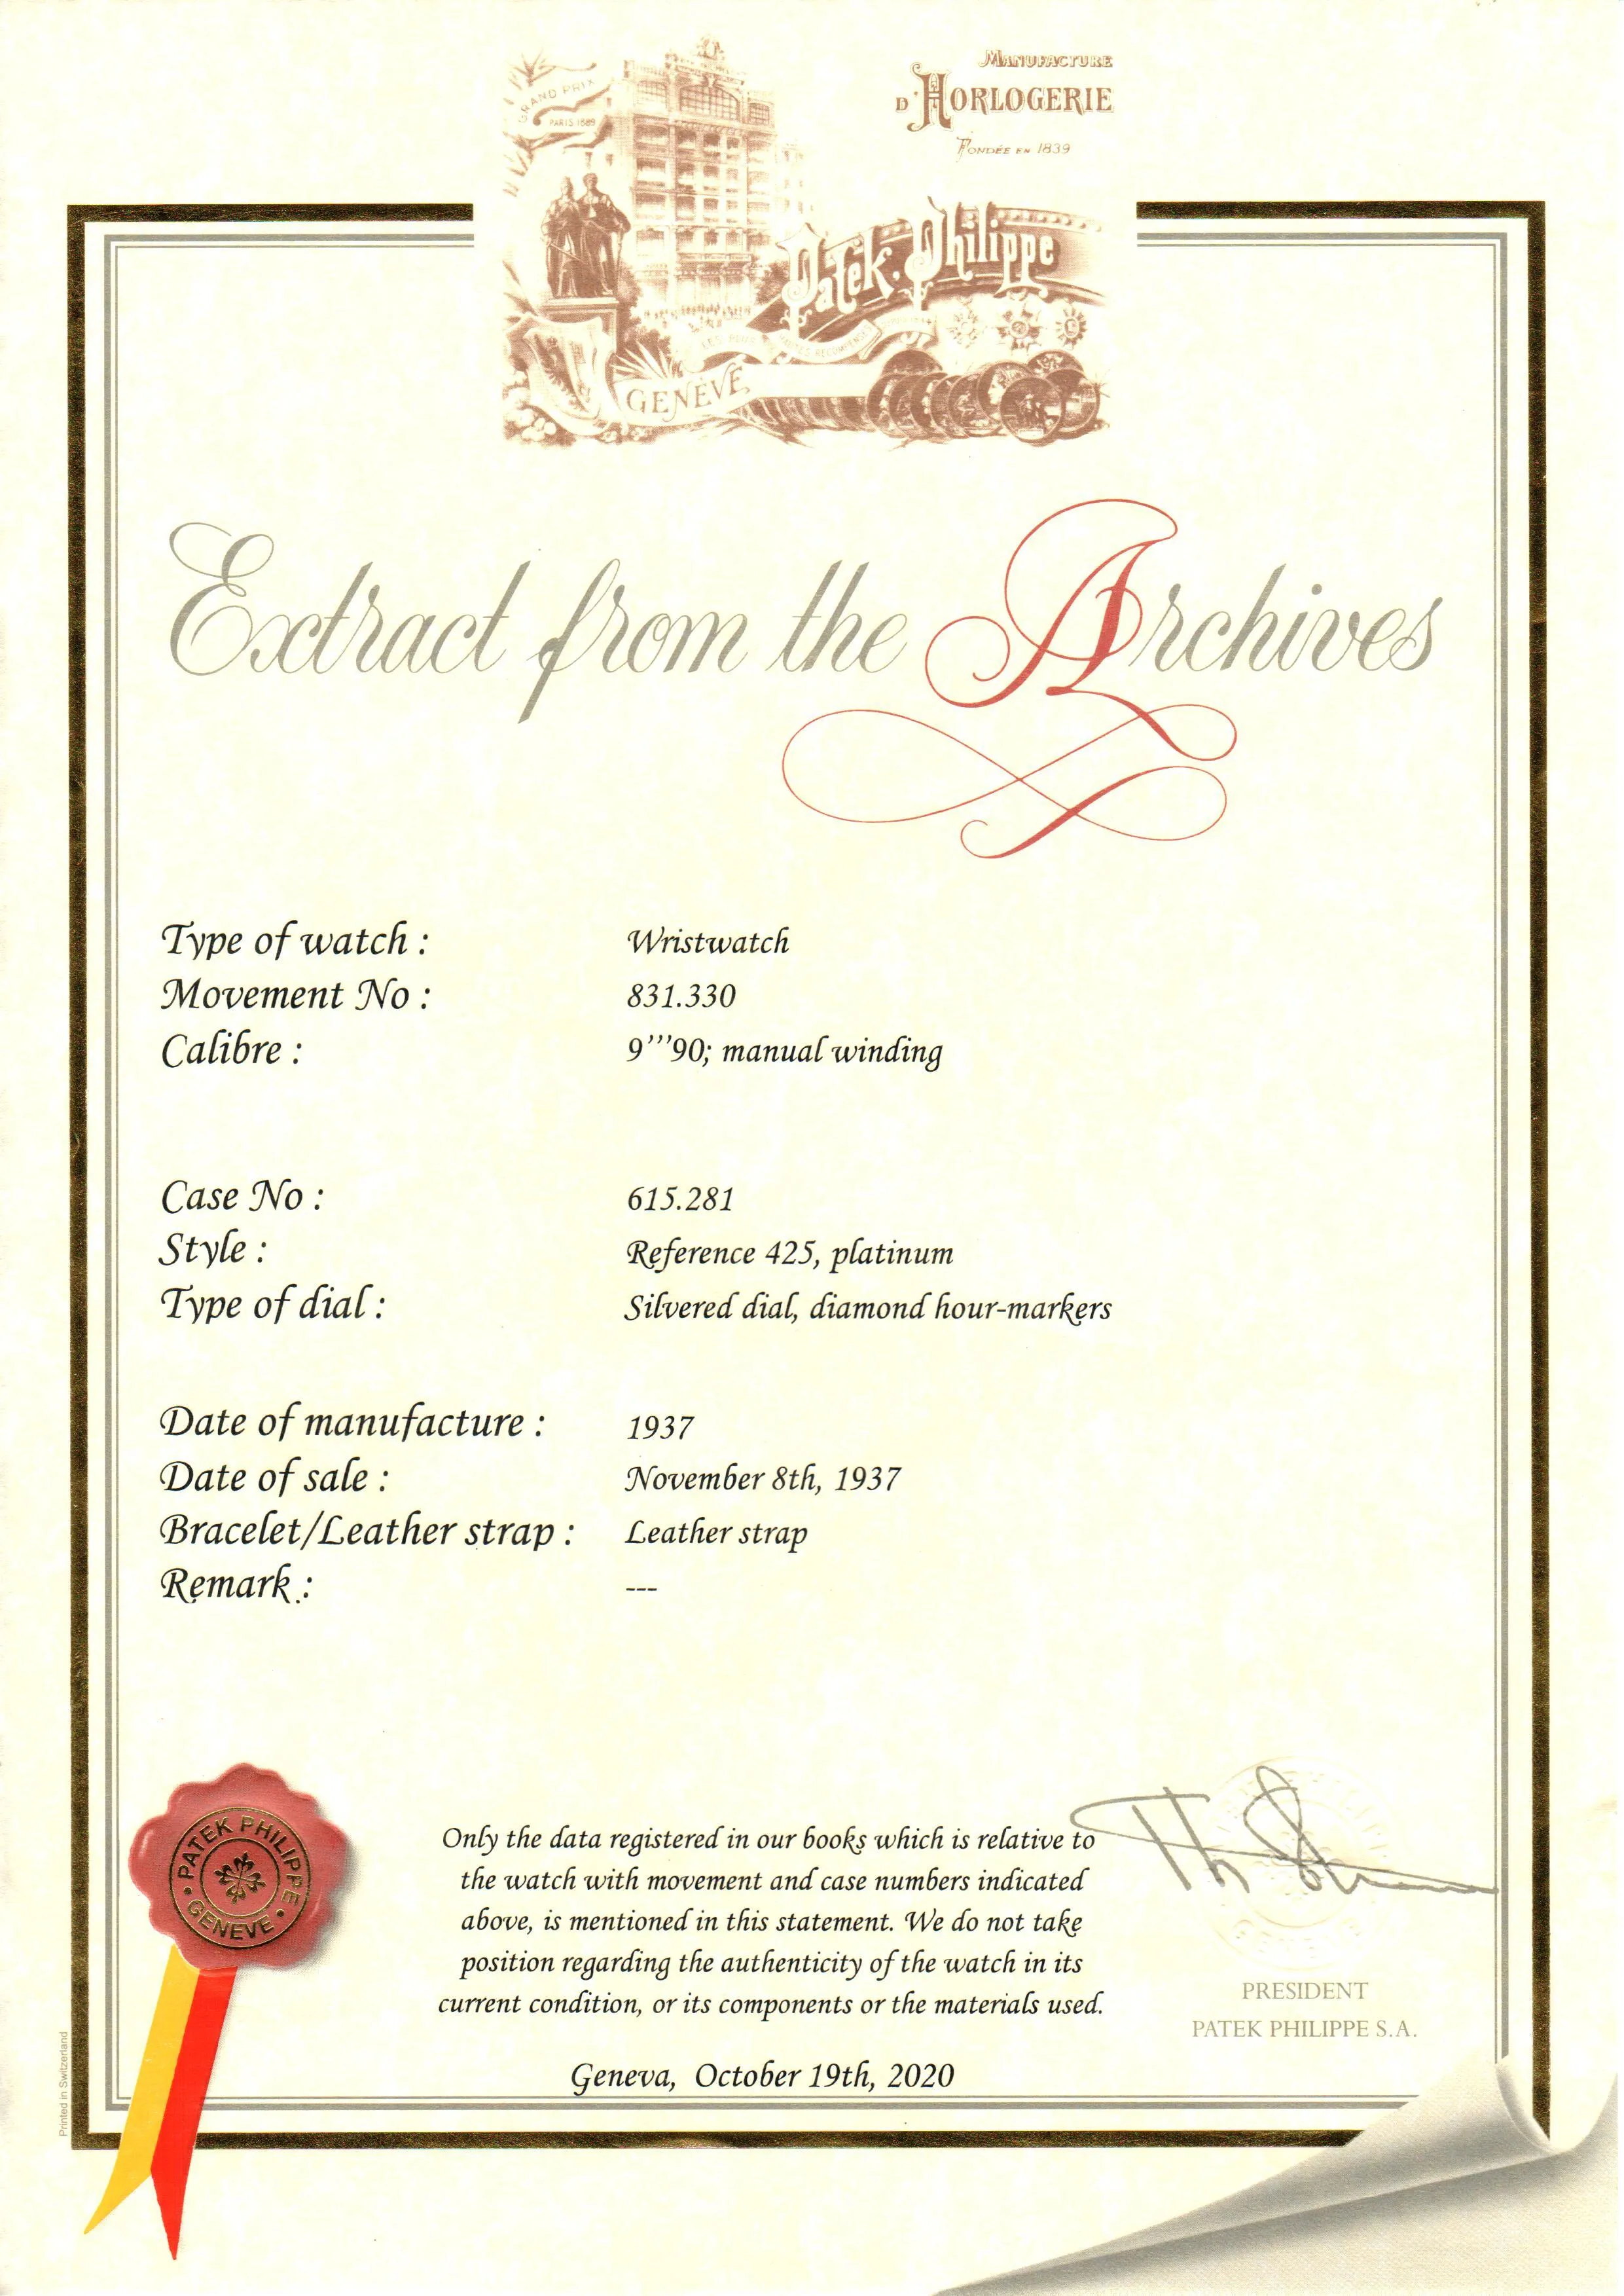 MANUFACTURE
D'HORLOGERIE
FONDÉE EN 1839
GRAND PRIX
PARIS 1889
Patek. Philippe
LES PLUS HAUTES RECOMPENSES
GENÈVE
Extract from the Archives
Type of watch : Wristwatch
Movement No : 831.330
Calibre : 9'''90; manual winding
Case No : 615.281
Style : Reference 425, platinum
Type of dial : Silvered dial, diamond hour-markers
Date of manufacture : 1937
Date of sale : November 8th, 1937
Bracelet/Leather strap : Leather strap
Remark : ---
PATEK PHILIPPE
GENEVE
Only the data registered in our books which is relative to
the watch with movement and case numbers indicated
above, is mentioned in this statement. We do not take
position regarding the authenticity of the watch in its
current condition, or its components or the materials used.
PRESIDENT
PATEK PHILIPPE S.A.
Geneva, October 19th, 2020
Printed in Switzerland